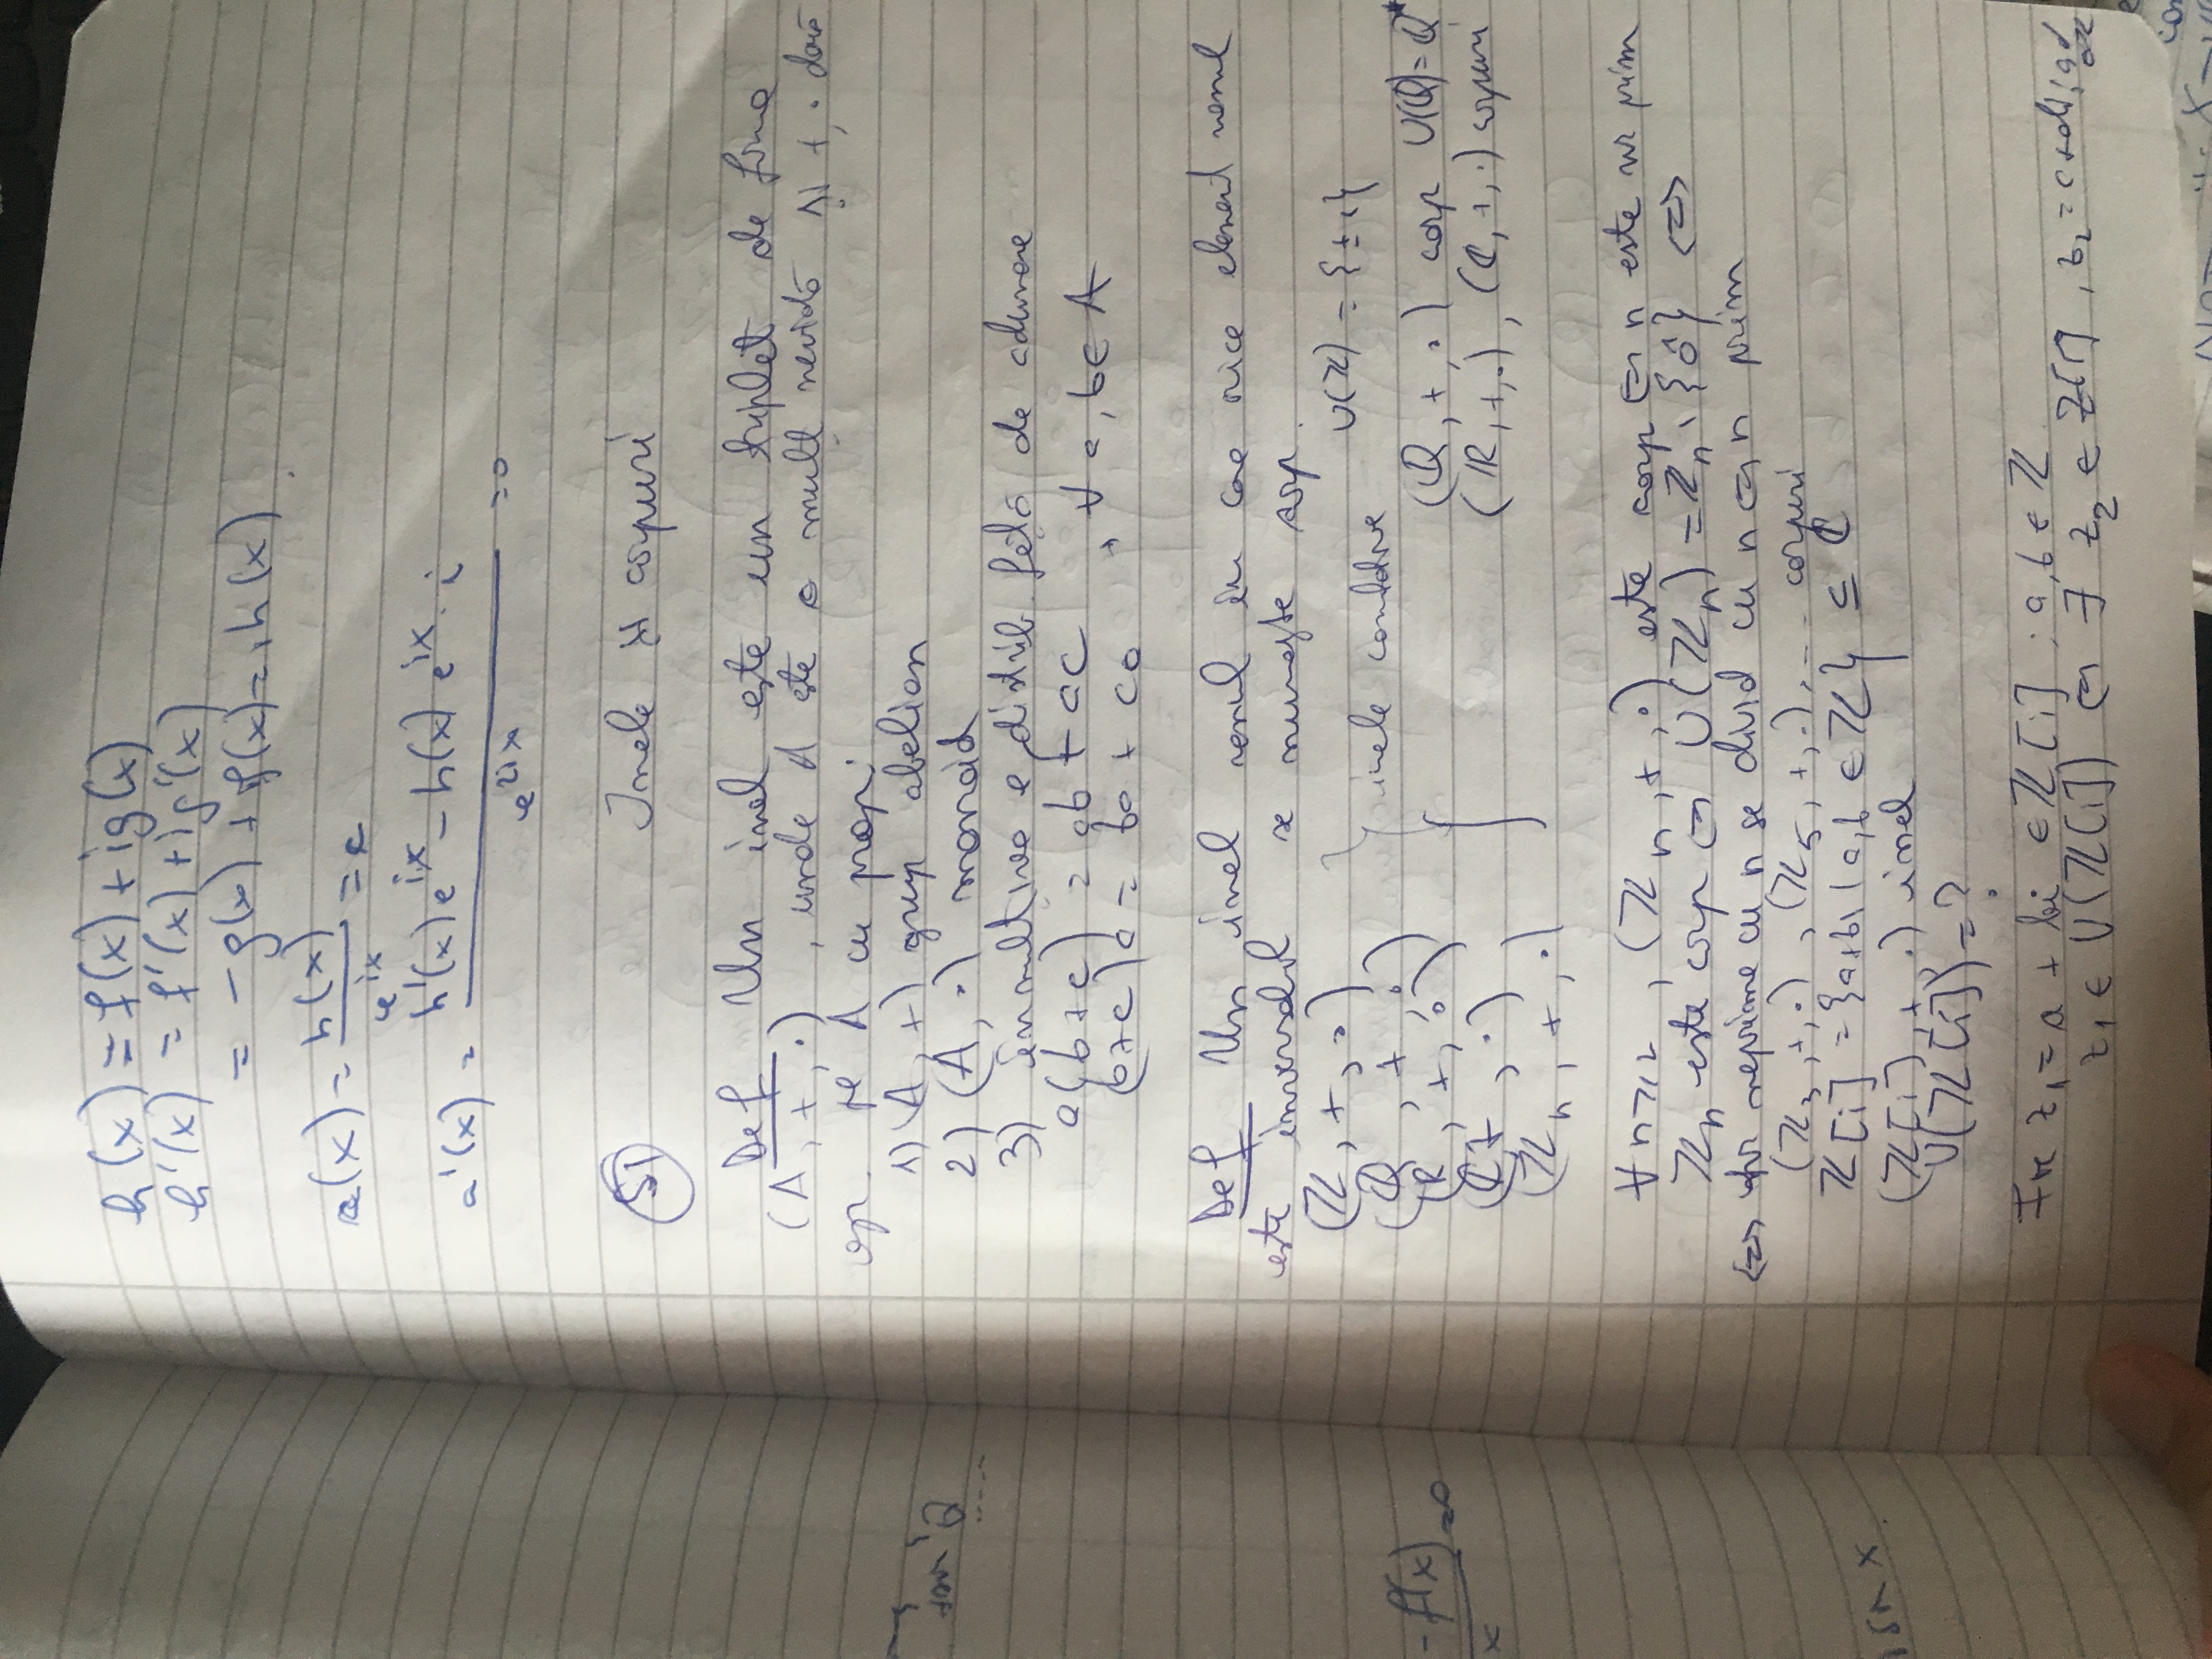 h(x) = f(x) + ig(x)
h'(x) = f'(x) + ig'(x)
= -g(x) + if(x) = ih(x).
a(x) = h(x)/e^{ix} = c
a'(x) = (h'(x)e^{ix} - h(x)e^{ix}·i)/e^{2ix} = 0
S1 Inele și corpuri
Def Un inel este un triplet de forma
(A,+,·), unde A este o mult nevidă și +,· două
op. pe A cu prop:
1) (A,+) grup abelian
2) (A,·) monoid
3) înmultirea e distrib. față de adunare
a(b+c) = ab + ac , ∀ a, b ∈ A
(b+c)a = ba + ca
Def Un inel nenul în care orice element nenul
este inversabil se numește corp.
(Z,+,·) } inele comutative U(Z) = {±1}
(Q,+,·) (Q,+,·) corp U(Q)=Q*
(R,+,·) (R,+,·), (C,+,·) corpuri
(C,+,·)
(Z_n,+,·)
∀ n≥2, (Z_n,+,·) este corp ⇔ n este nr prim
Z_n este corp ⇔ U(Z_n) = Z_n \ {0̂} ⇔
⇔ orice nr mai mic ca n se divid cu n ⇔ n prim
(Z_3,+,·), (Z_5,+,·),... corpuri
Z[i] = {a+bi | a,b ∈ Z} ⊆ C
(Z[i],+,·) inel
U(Z[i]) = ?
Fie z_1 = a + bi ∈ Z[i], a,b ∈ Z
z_1 ∈ U(Z[i]) ⇔ ∃ z_2 ∈ Z[i], z_2 = c+di,
-f(x) = 0
x